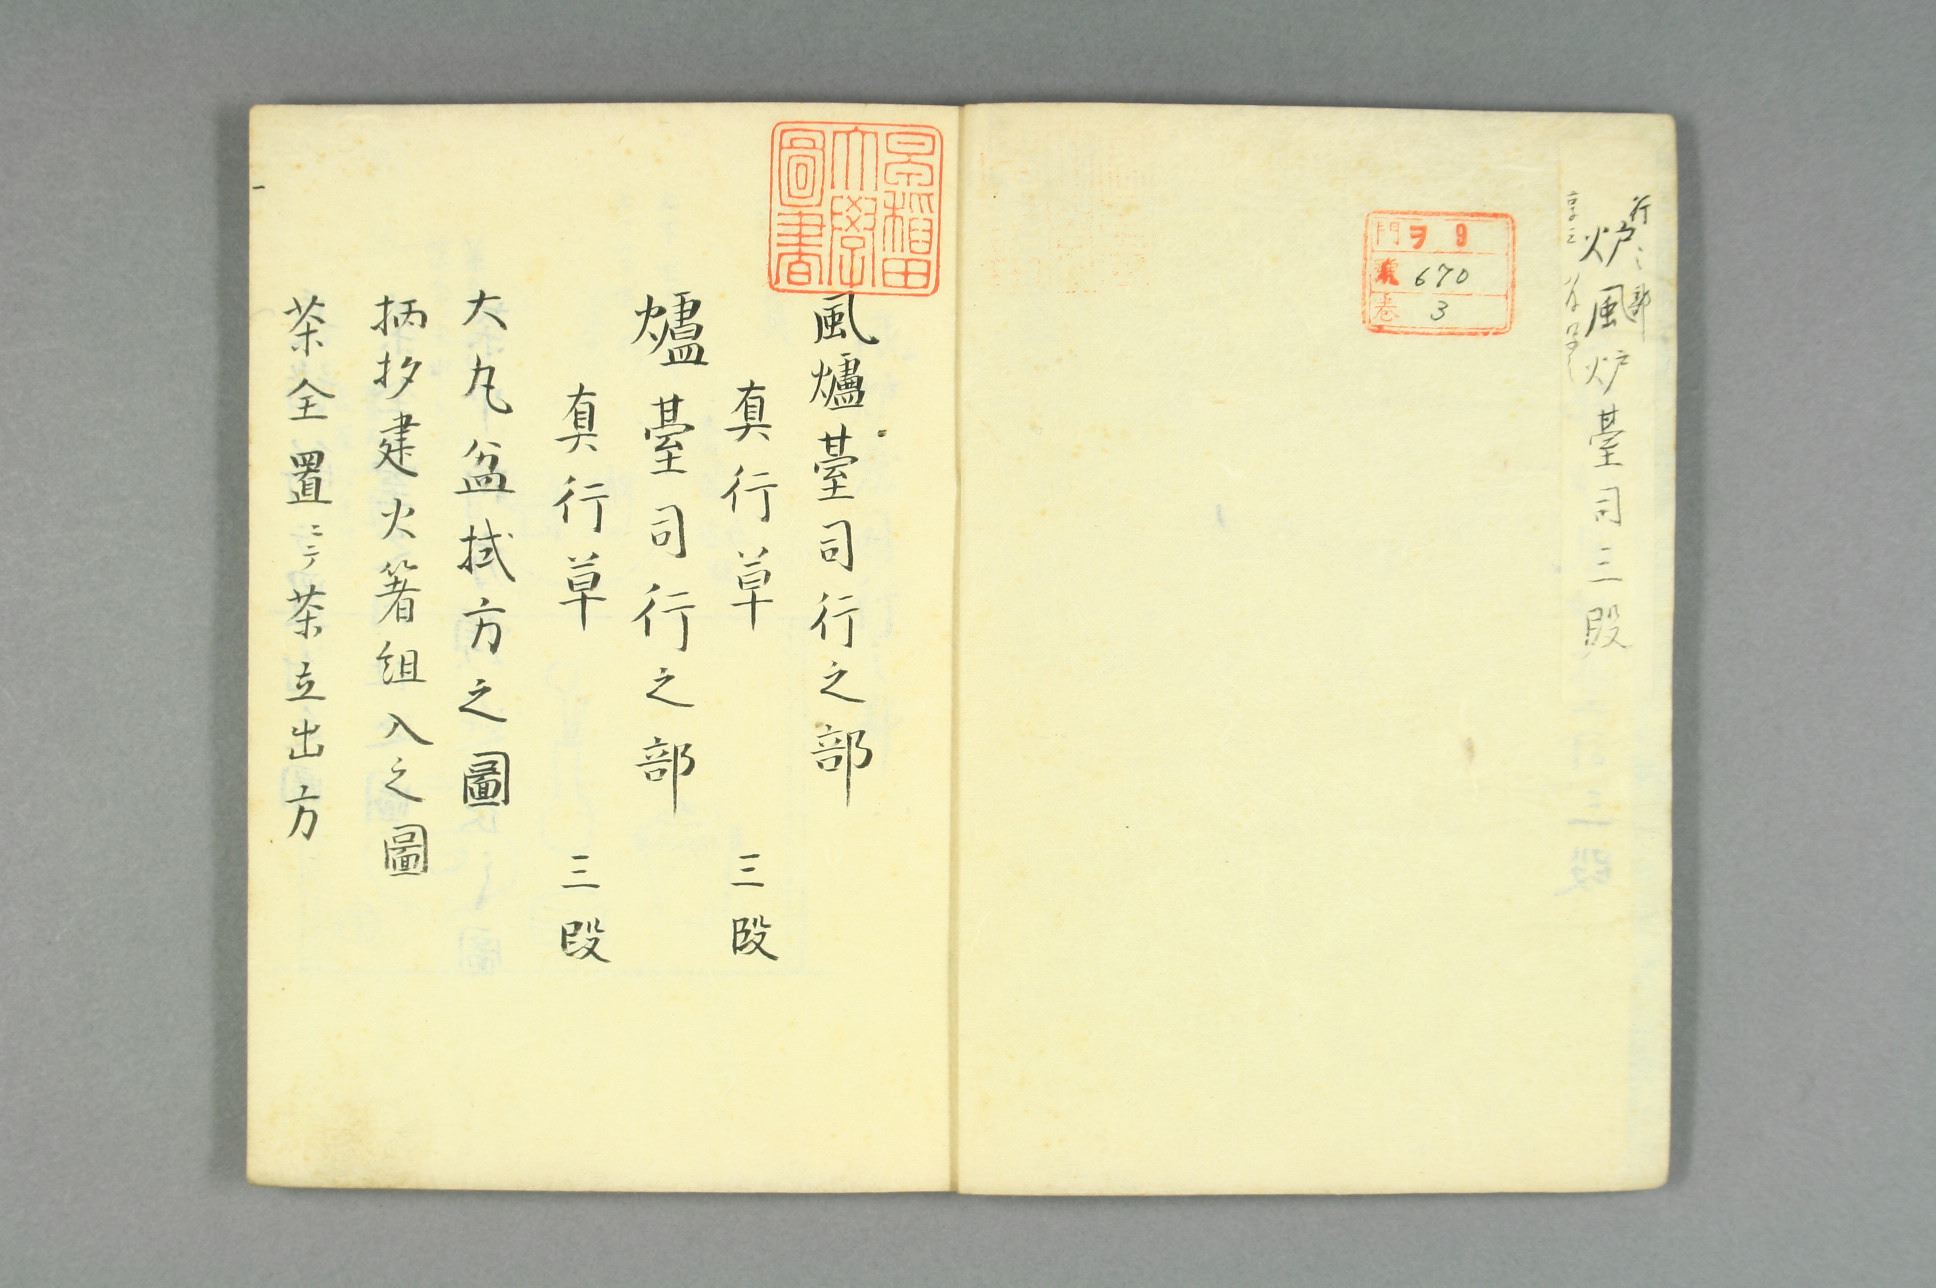 炉風炉臺司三段
門 ヲ 9
號 670
巻 3
早稲田
大學
圖書
風爐臺司行之部
真行草 三段
爐臺司行之部
真行草 三段
大丸盆拭方之圖
柄杓建火箸組入之圖
茶全置ニテ茶立出方